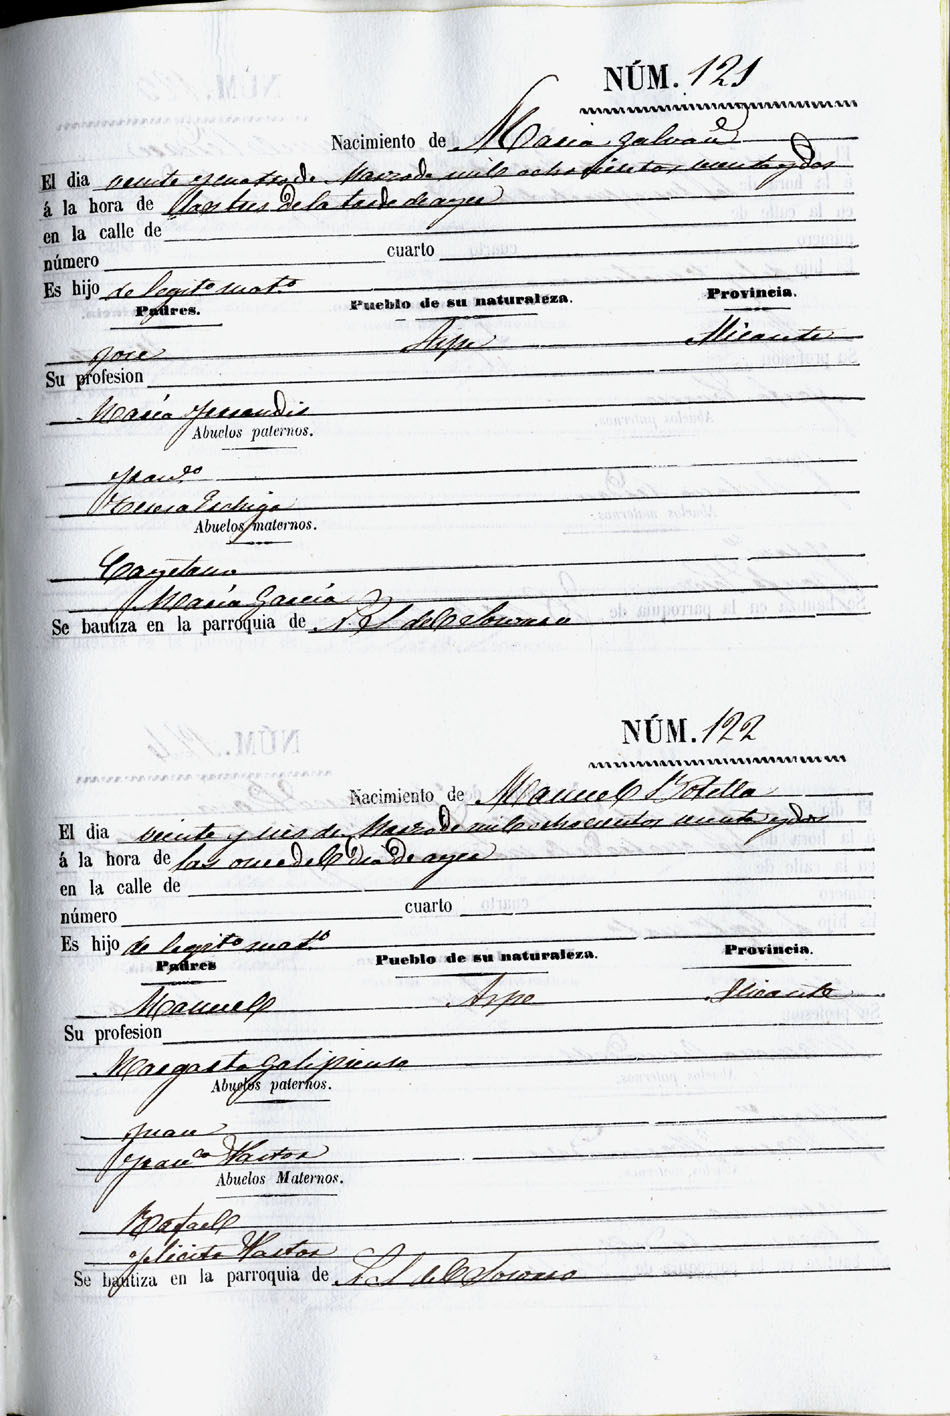 NÚM. 121
Nacimiento de Maria Galvañ
El dia veinte y cuatro de Marzo de mil ochocientos veinte y dos
á la hora de las tres de la tarde de ayer
en la calle de
número cuarto
Es hijo de legit.º mat.º
Padres. Pueblo de su naturaleza. Provincia.
Jose Aspe Alicante
Su profesion
María
Abuelos paternos.
Fran.co
Teresa
Abuelos maternos.
Cayetano
María García
Se bautiza en la parroquia de N. S. del Socorro
NÚM. 122
Nacimiento de Manuel Botella
El dia veinte y tres de Marzo de mil ochocientos veinte y dos
á la hora de las once del dia de ayer
en la calle de
número cuarto
Es hijo de legit.º mat.º
Padres Pueblo de su naturaleza. Provincia.
Manuel Aspe Alicante
Su profesion
Margarita Galipienso
Abuelos paternos.
Juan
Fran.ca Pastor
Abuelos Maternos.
Rafael
Felicita Pastor
Se bautiza en la parroquia de N. S. del Socorro